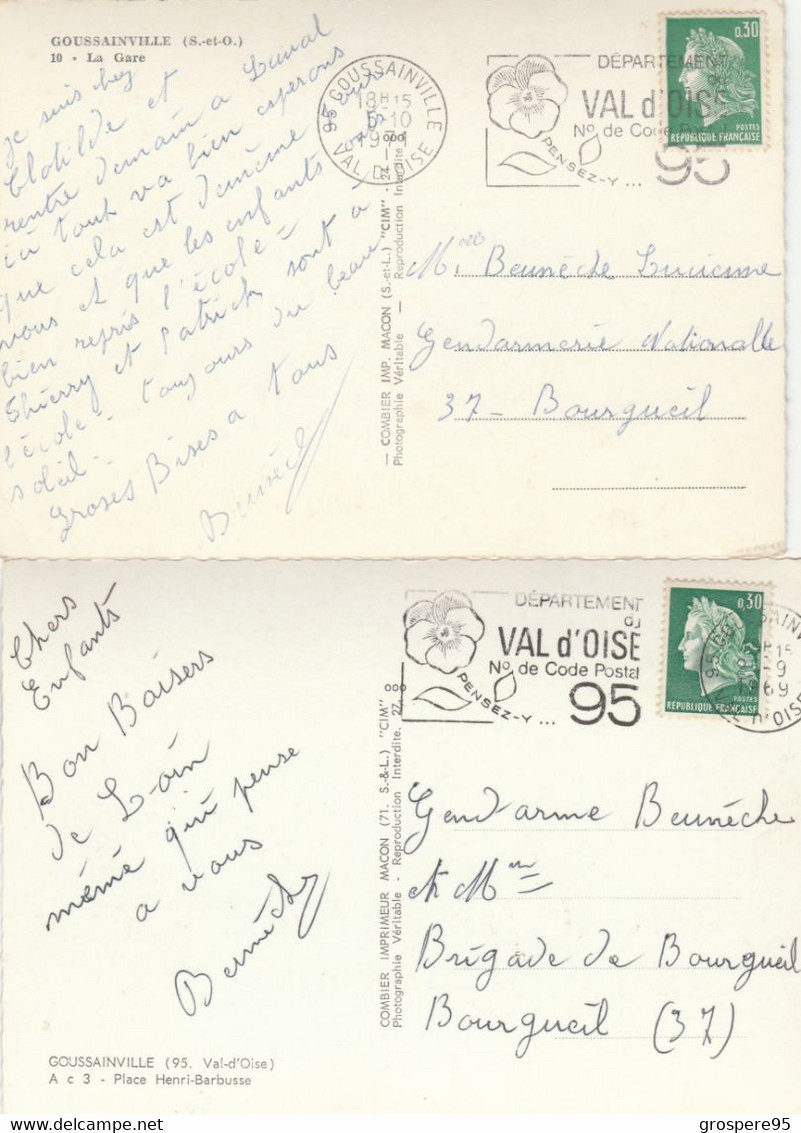 GOUSSAINVILLE (S.-et-O.)
10 - La Gare
Je suis chez
Clotilde et
rentre demain a
ici tout va bien esperons
que cela est de même
vous et que les enfants
bien repris l'école =
Thierry et Patrick sont a
l'école - toujours du beau
soleil -
Groses Bises a tous
Beunèche
95 GOUSSAINVILLE
18H15
5-10
1971
VAL D'OISE
DÉPARTEMENT
VAL d'OISE
No. de Code Postal
95
PENSEZ-Y...
0,30
POSTES
REPUBLIQUE FRANÇAISE
— COMBIER IMP. MACON (S.-et-L.) "CIM" —
Photographie Véritable — Reproduction Interdite
Beunèche
Gendarmerie Nationalle
37 - Bourgueil
Chers
Enfants
Bon Baisers
de Loin
même qui pense
a vous
Beunèche
GOUSSAINVILLE (95. Val-d'Oise)
A c 3 - Place Henri-Barbusse
COMBIER IMPRIMEUR MACON (71. S.-&-L.) "CIM"
Photographie Véritable - Reproduction Interdite.
DÉPARTEMENT
du
VAL d'OISE
No. de Code Postal
95
PENSEZ-Y...
0,30
POSTES
REPUBLIQUE FRANÇAISE
Gendarme Beunèche
et Mme
Brigade de Bourgueil
Bourgueil (37)
grospere95